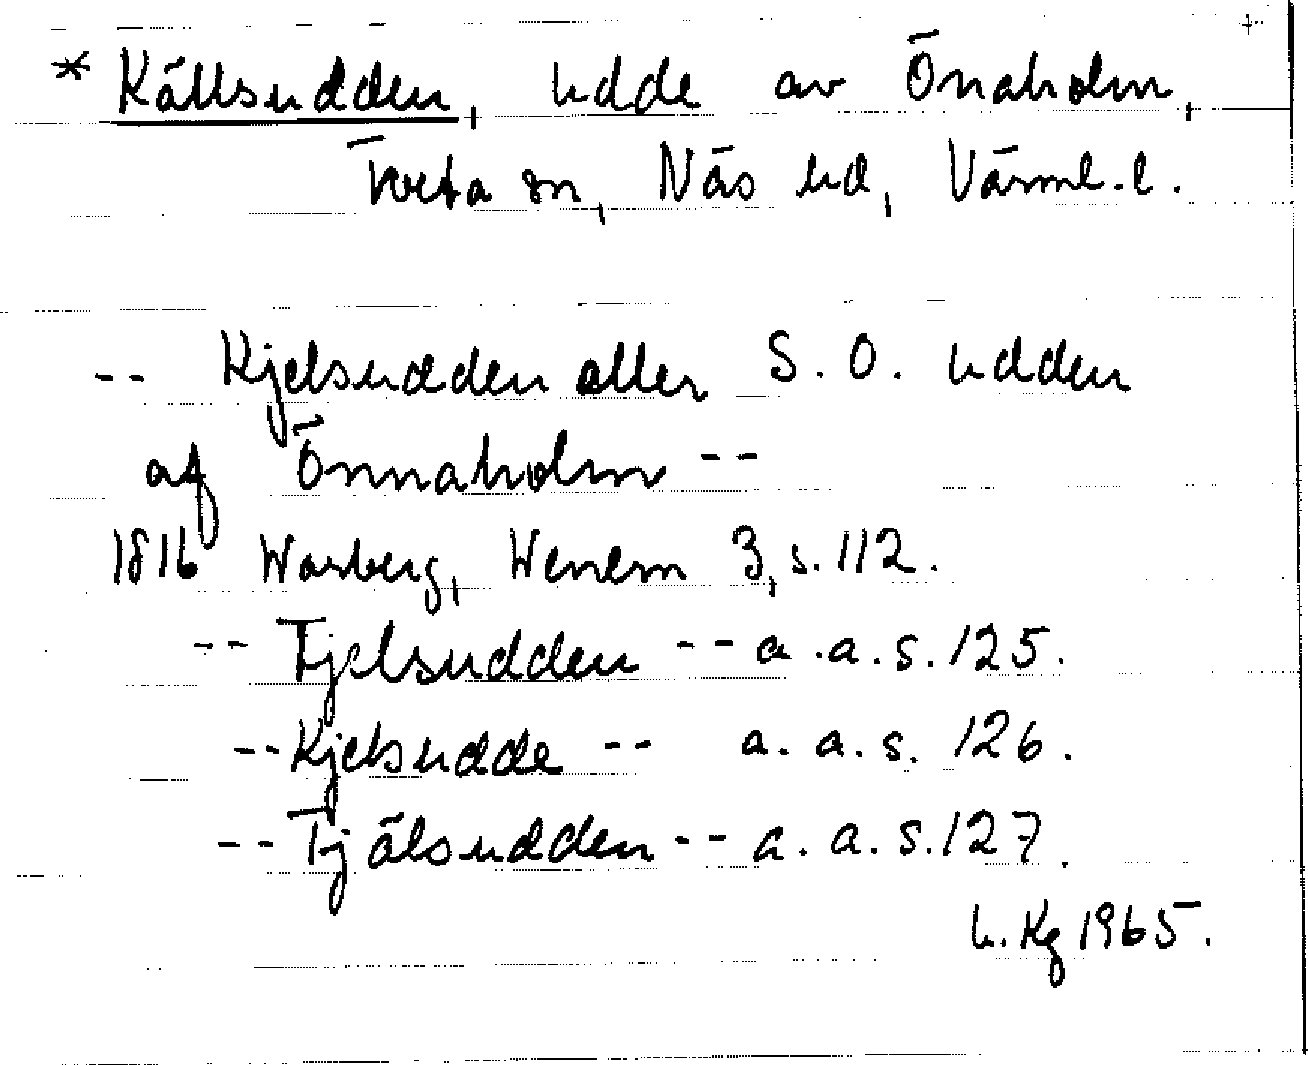 * Källsudden, udde av Önaholm,
Tveta sn, Näs hd, Värml. l.
-- Kjelsudden eller S. O. udden
af Önnaholm --
1816 Warberg, Wenern 3, s. 112.
-- Tjelsudden -- a. a. s. 125.
-- Kjelsudde -- a. a. s. 126.
-- Tjälsudden -- a. a. s. 127.
h. Kg 1965.